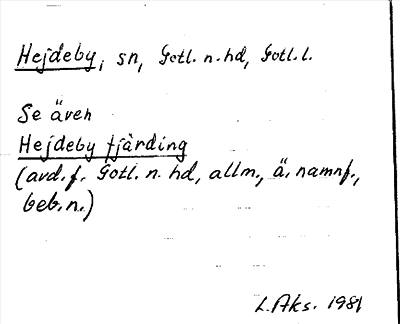 Hejdeby, sn, Gotl. n. hd, Gotl. l.
Se även
Hejdeby fjärding
(avd. f. Gotl. n. hd, allm., ä. namnf.,
beb. n.)
L. Aks. 1981